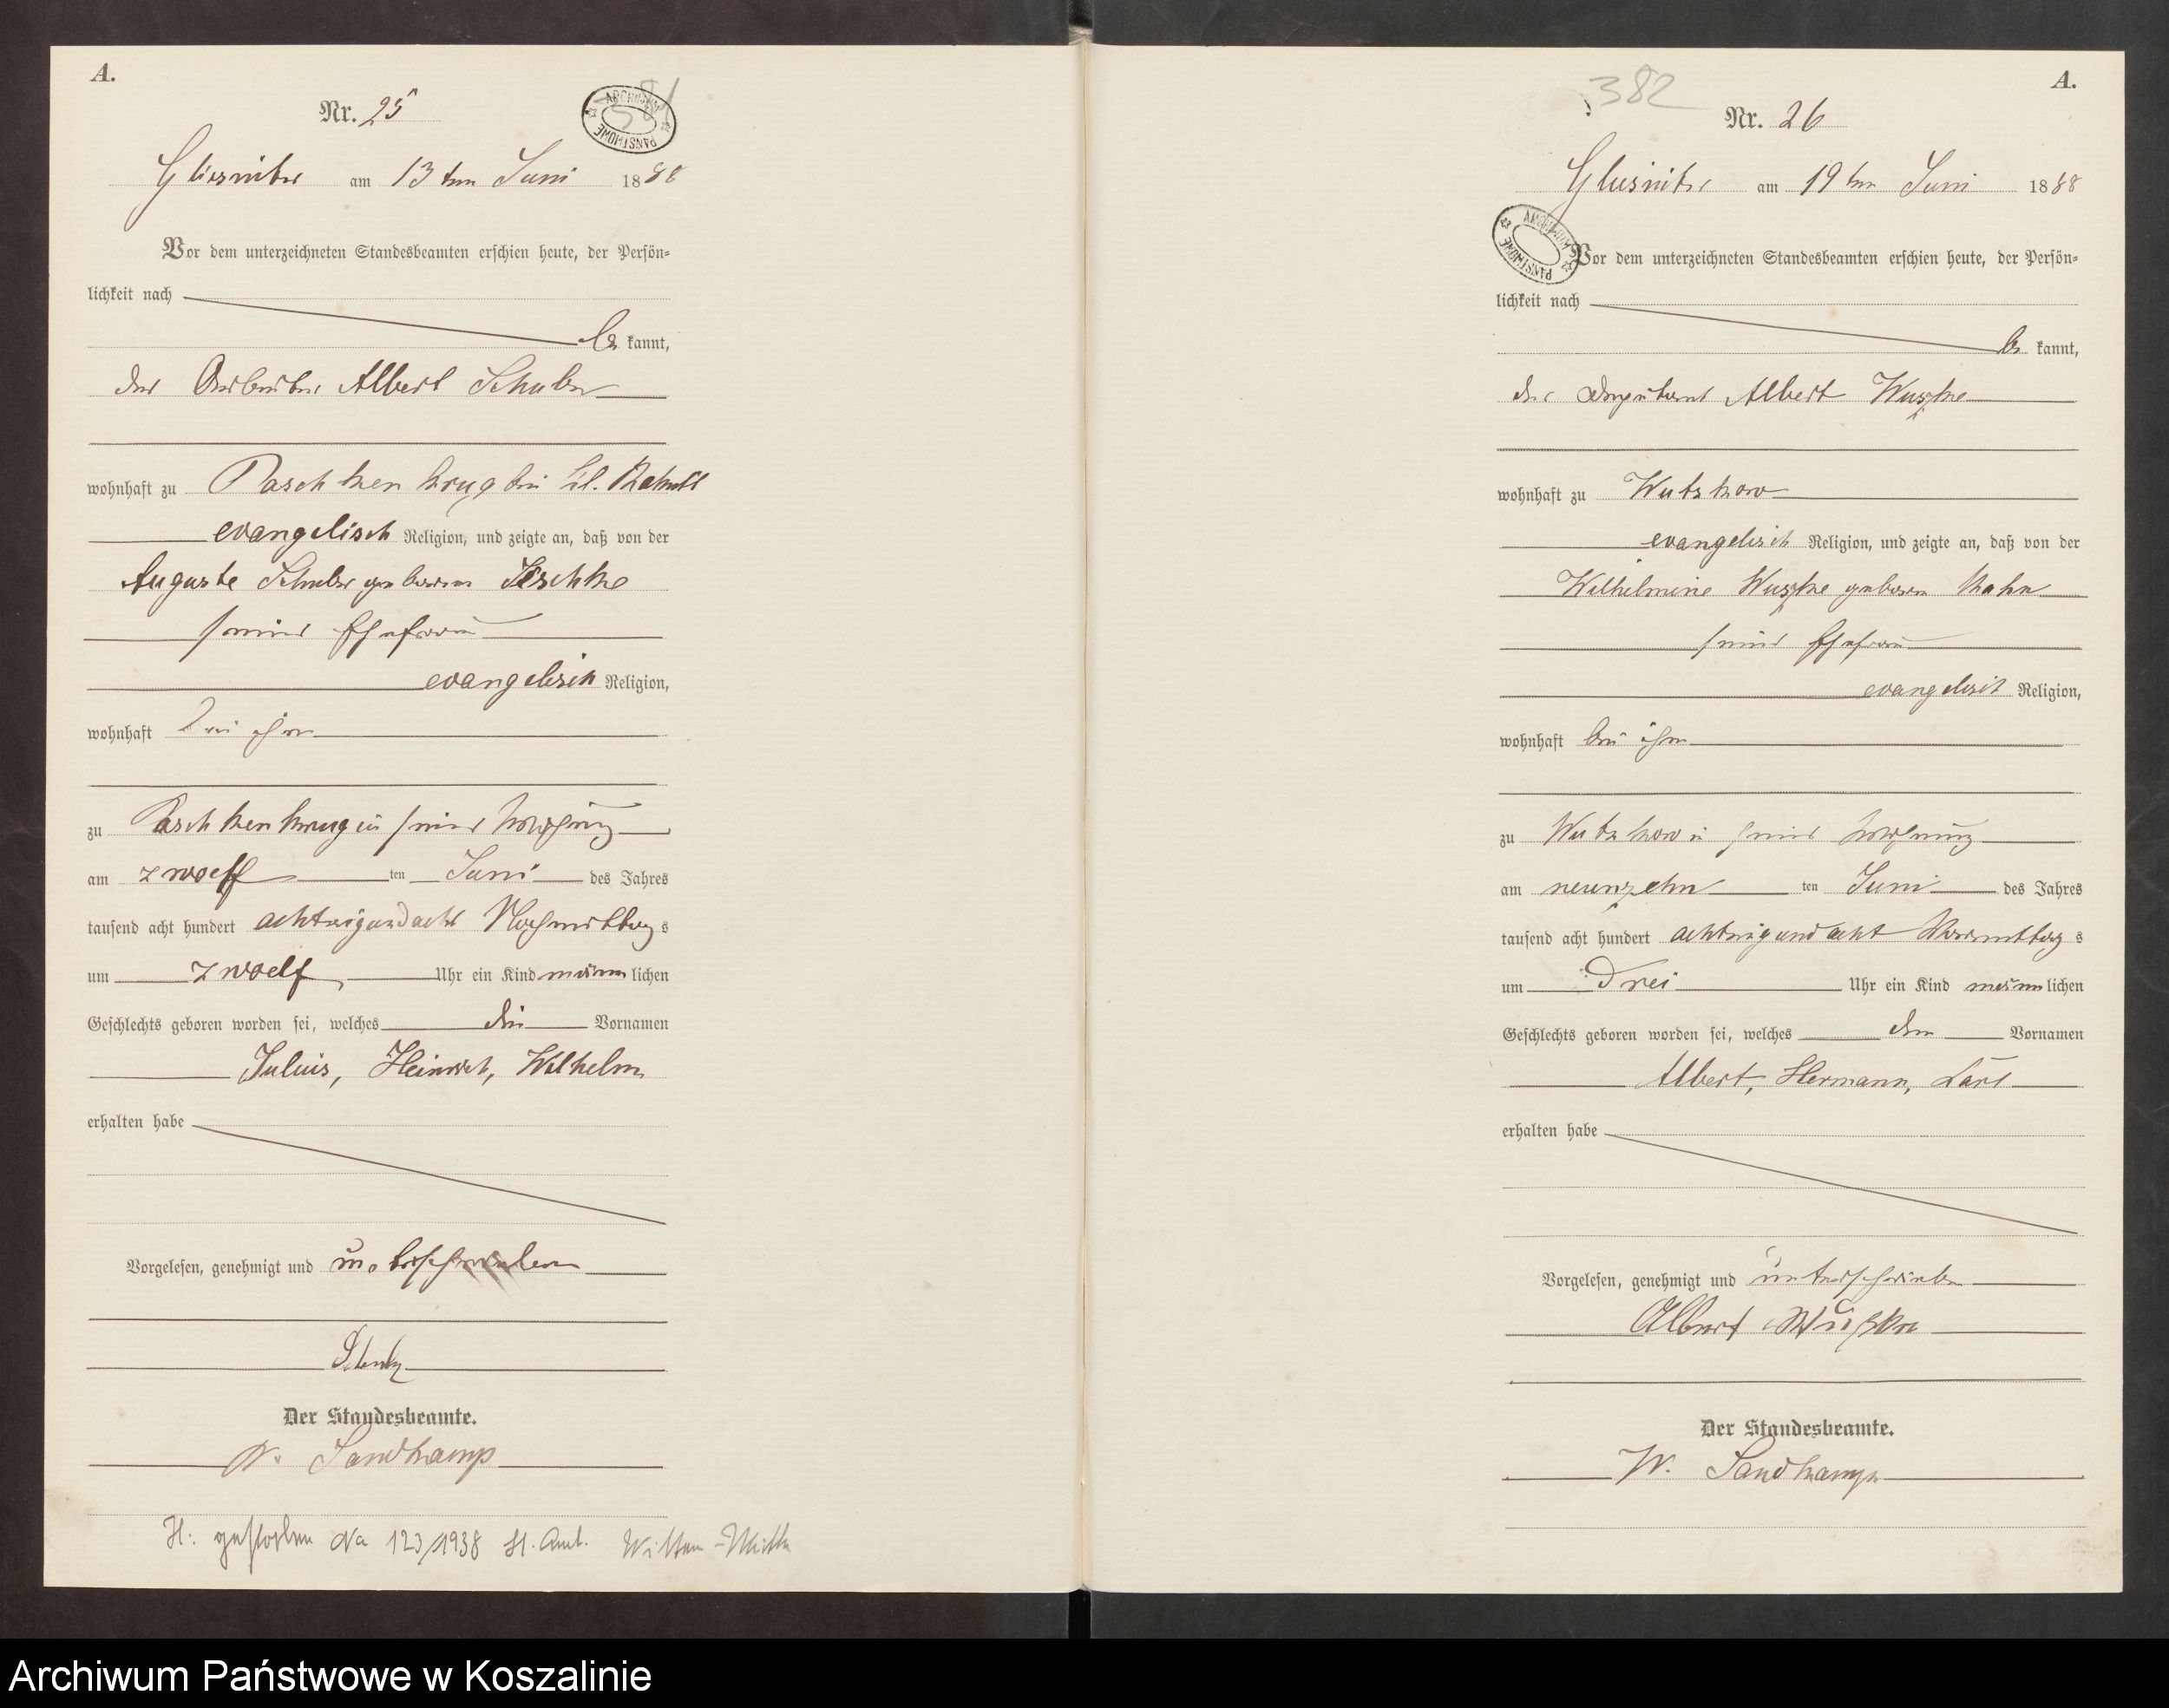 A.
Nr. 25
381
ARCHIWUM PAŃSTWOWE
Gliesnitz am 13ten Juni 1888
Vor dem unterzeichneten Standesbeamten erschien heute, der Persön-
lichkeit nach
be kannt,
der Arbeiter Albert Schulz
wohnhaft zu Paschkenkrug bei Kl.
evangelisch Religion, und zeigte an, daß von der
Auguste Schulz geborene Jeschke
seiner Ehefrau
evangelisch Religion,
wohnhaft bei ihm
zu Paschkenkrug in seiner Wohnung
am zwoelf ten Juni des Jahres
tausend acht hundert achtzigundacht Nachmittag s
um zwoelf Uhr ein Kind männ lichen
Geschlechts geboren worden sei, welches die Vornamen
Julius, Heinrich, Wilhelm
erhalten habe
Vorgelesen, genehmigt und unterschrieben
Schulz
Der Standesbeamte.
W. Sandkamp
H: gestorben Na 123/1938 St. Amt. Witten-Mitte
A.
382
Nr. 26
Gliesnitz am 19ten Juni 1888
ARCHIWUM PAŃSTWOWE
Vor dem unterzeichneten Standesbeamten erschien heute, der Persön-
lichkeit nach
be kannt,
der Deputant Albert Wuszke
wohnhaft zu Wutzkow
evangelisch Religion, und zeigte an, daß von der
Wilhelmine Wuszke geboren Hahn
seiner Ehefrau
evangelisch Religion,
wohnhaft bei ihm
zu Wutzkow in seiner Wohnung
am neunzehn ten Juni des Jahres
tausend acht hundert achtzigundacht Vormittag s
um Drei Uhr ein Kind männ lichen
Geschlechts geboren worden sei, welches den Vornamen
Albert, Hermann, Karl
erhalten habe
Vorgelesen, genehmigt und unterschrieben
Albert Wußke
Der Standesbeamte.
W. Sandkamp
Archiwum Państwowe w Koszalinie